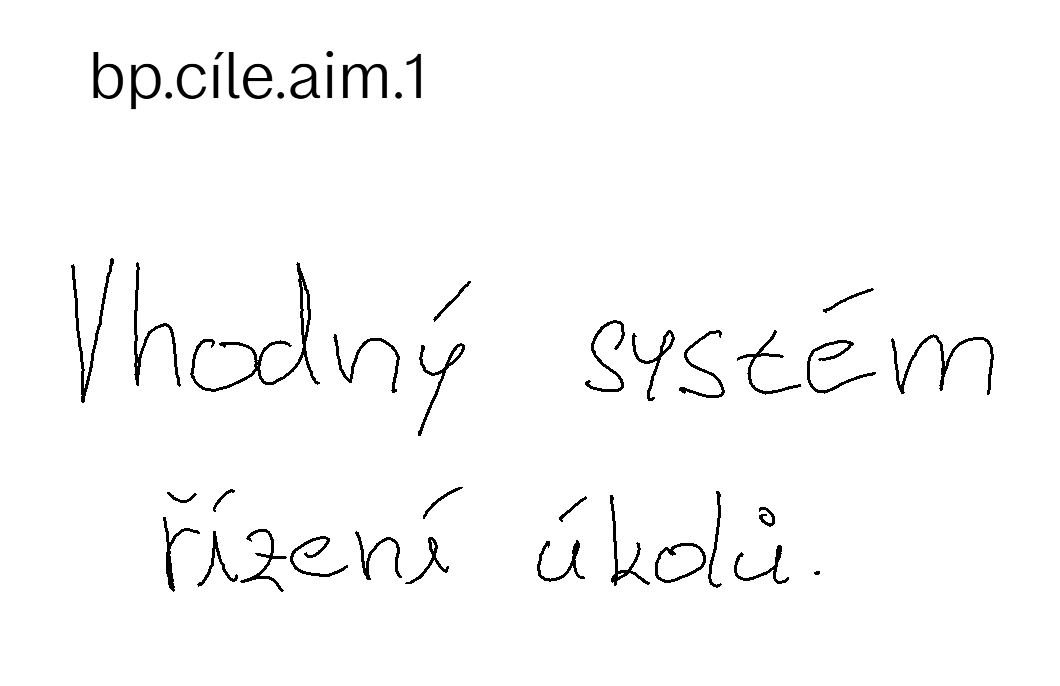 bp.cíle.aim.1
Vhodný systém
řízení úkolů.